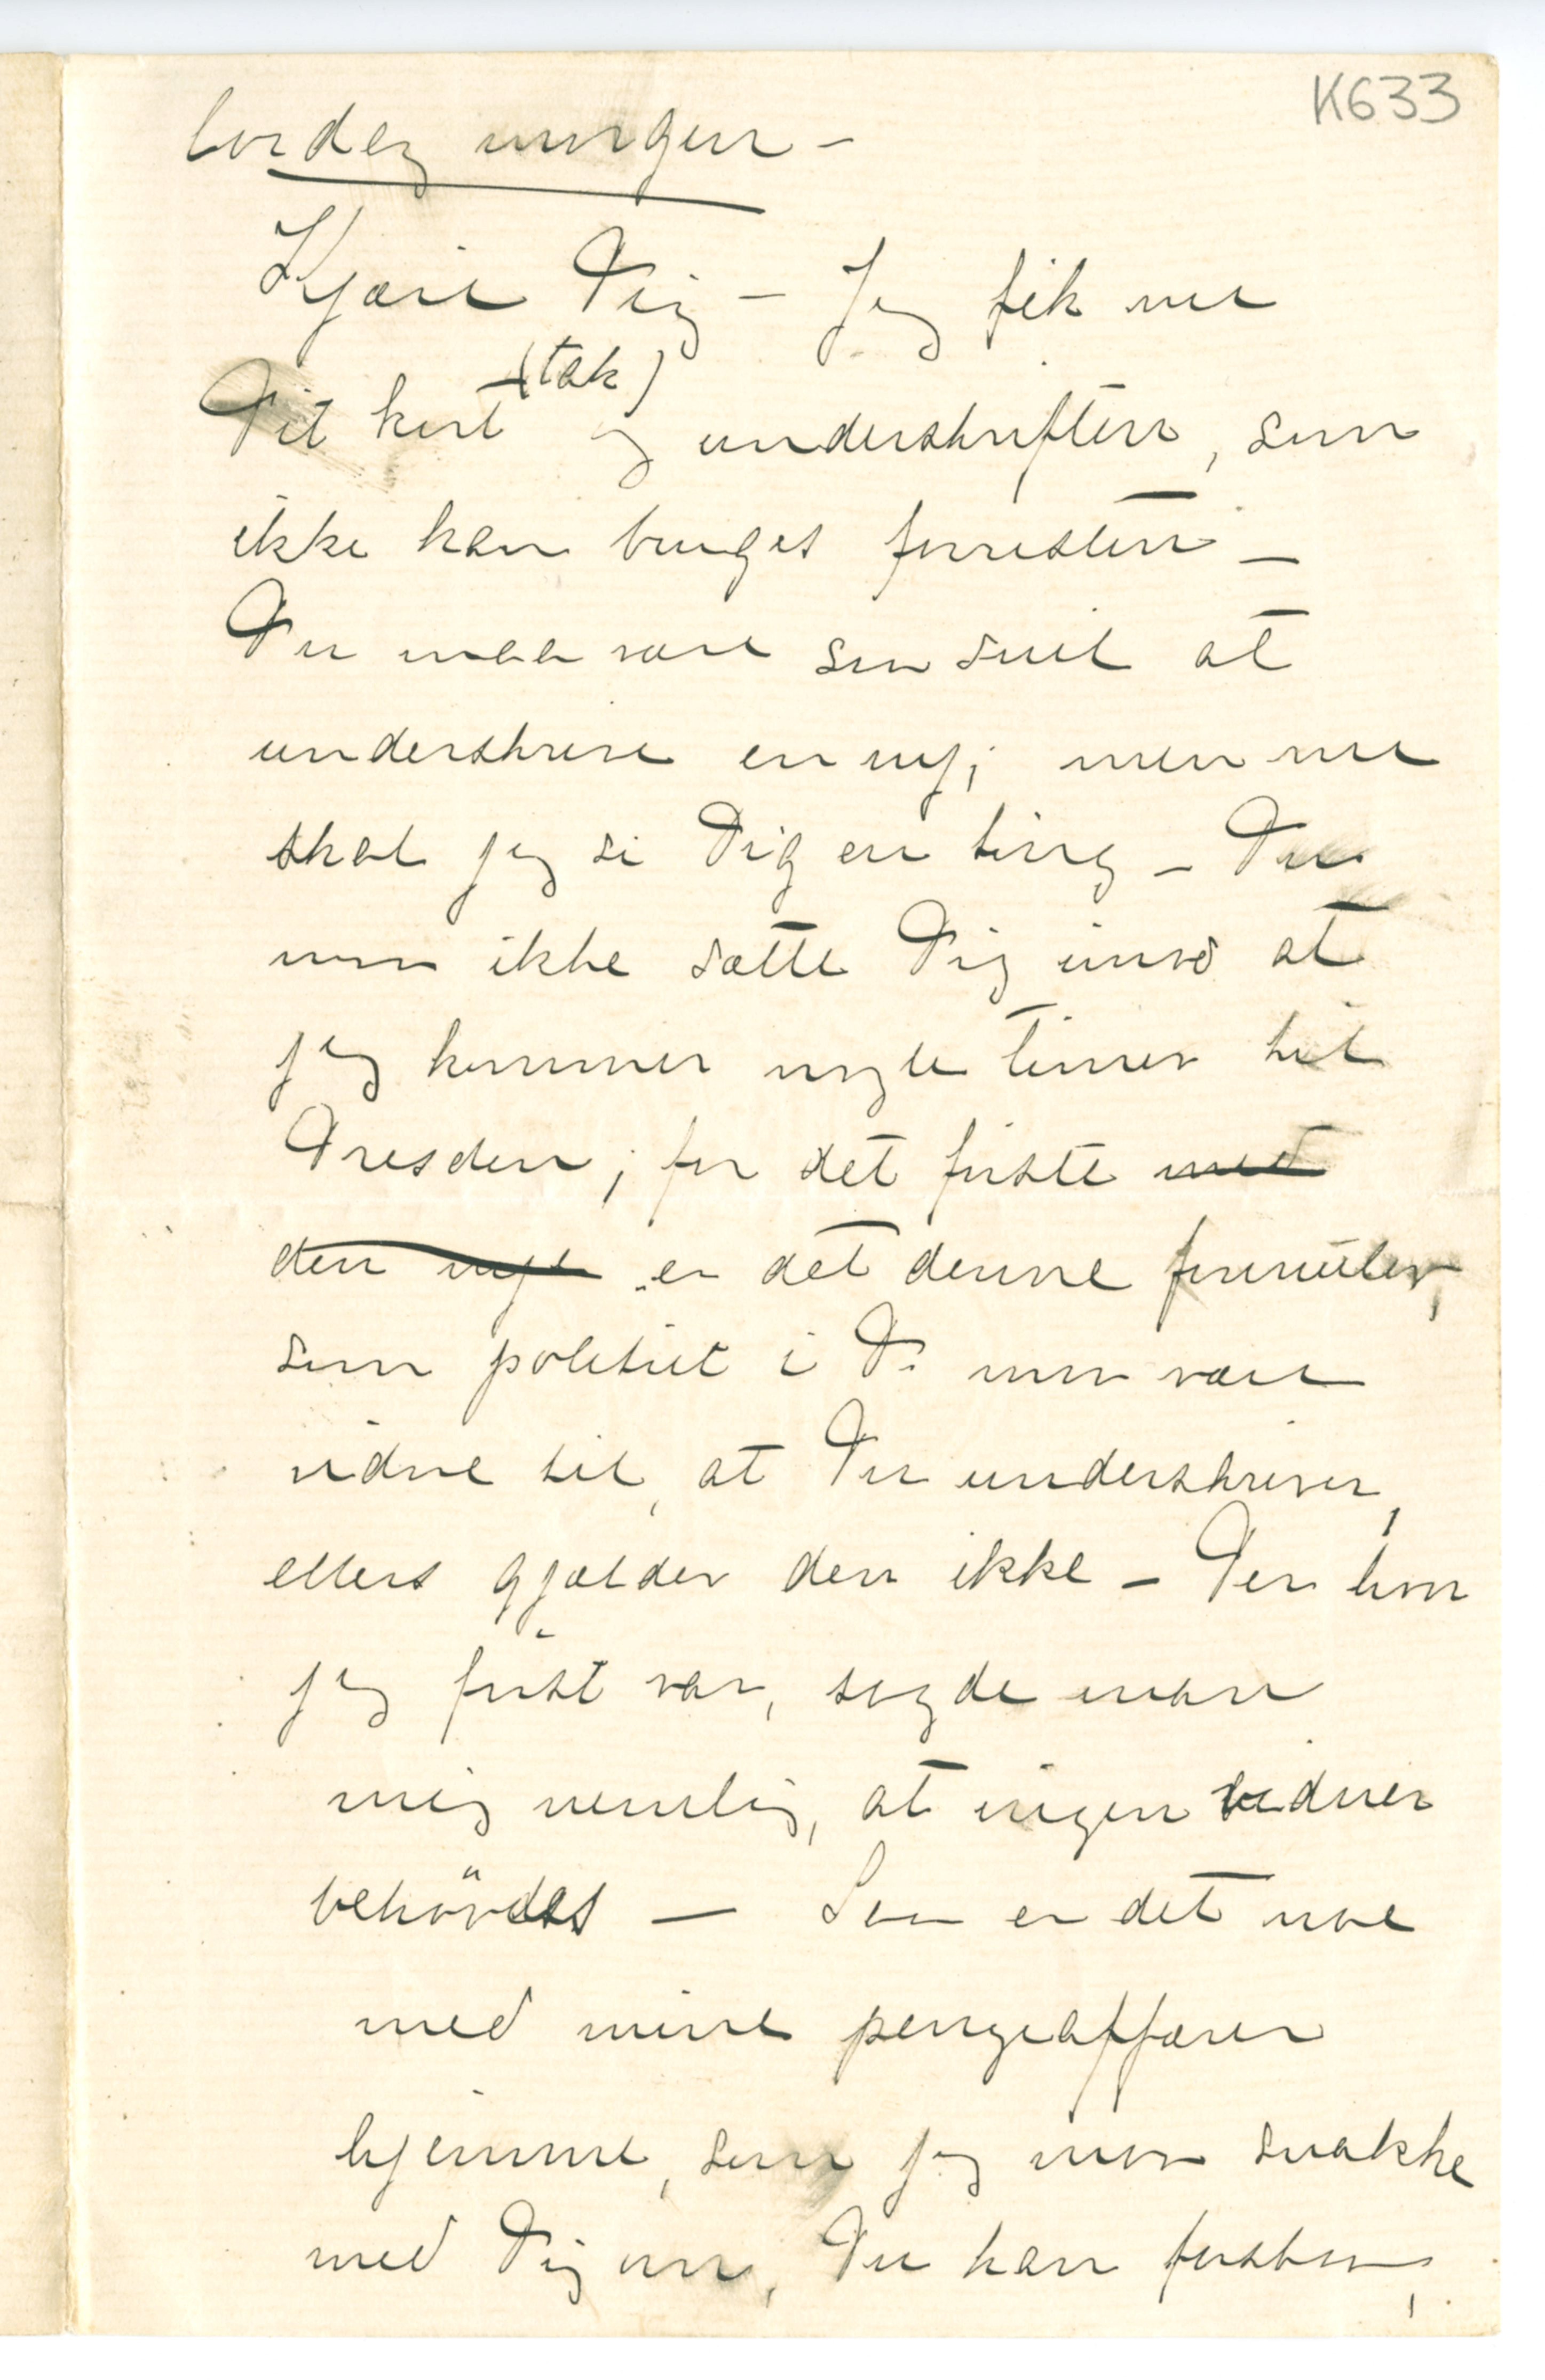 K633
Lørdag morgen –
Kjære Dig – Jeg fik nu
Dit kort (tak) og underskriften, som
ikke kan bruges forresten –
Du maa være saa snil at
underskrive en ny; men nu
skal jeg si Dig en ting – Du
maa ikke sætte Dig imod at
jeg kommer nogle timer til
Dresden; for det første med
den nye er det denne formular,
som politiet i D. maa være
vidne til, at Du underskriver,
ellers gjælder den ikke – Der hvor
jeg først var, sagde man
mig nemlig, at ingen vidner
behøvdes – Saa er det noe
med mine pengeaffærer
hjemme, som jeg maa snakke
med Dig om, Du kan forstaa,